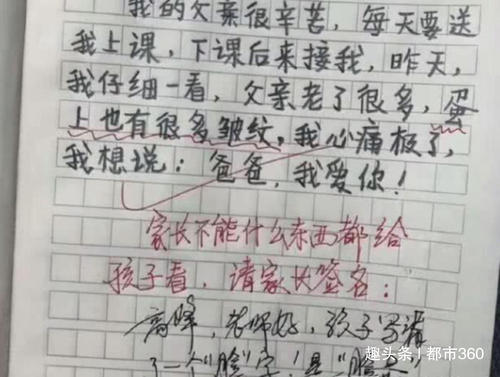 我的父亲很辛苦，每天要送
我上课，下课后来接我，昨天，
我仔细一看，父亲老了很多，蛋
上也有很多皱纹，我心痛极了，
我想说：爸爸，我爱你！
家长不能什么东西都给
孩子看，请家长签名：
高峰，老师好，孩子写错
了一个"脸"字！是"脸
趣头条 | 都市360